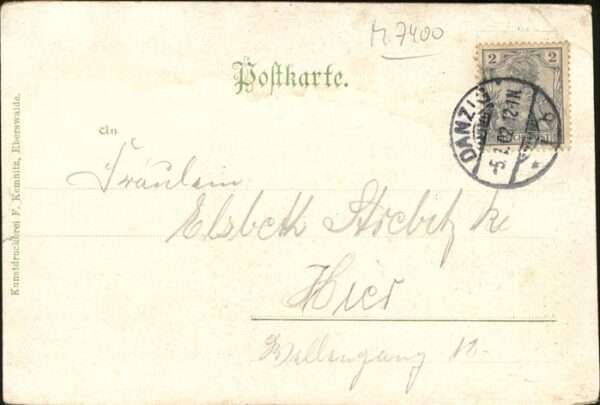 M.7400
Postkarte.
2
DANZIG
5.2.02.12-1N.
An
Fräulein
Elsbeth Stiebitzke
Hier
Wallengang 12.
Kunstdruckerei F. Kemnitz, Eberswalde.